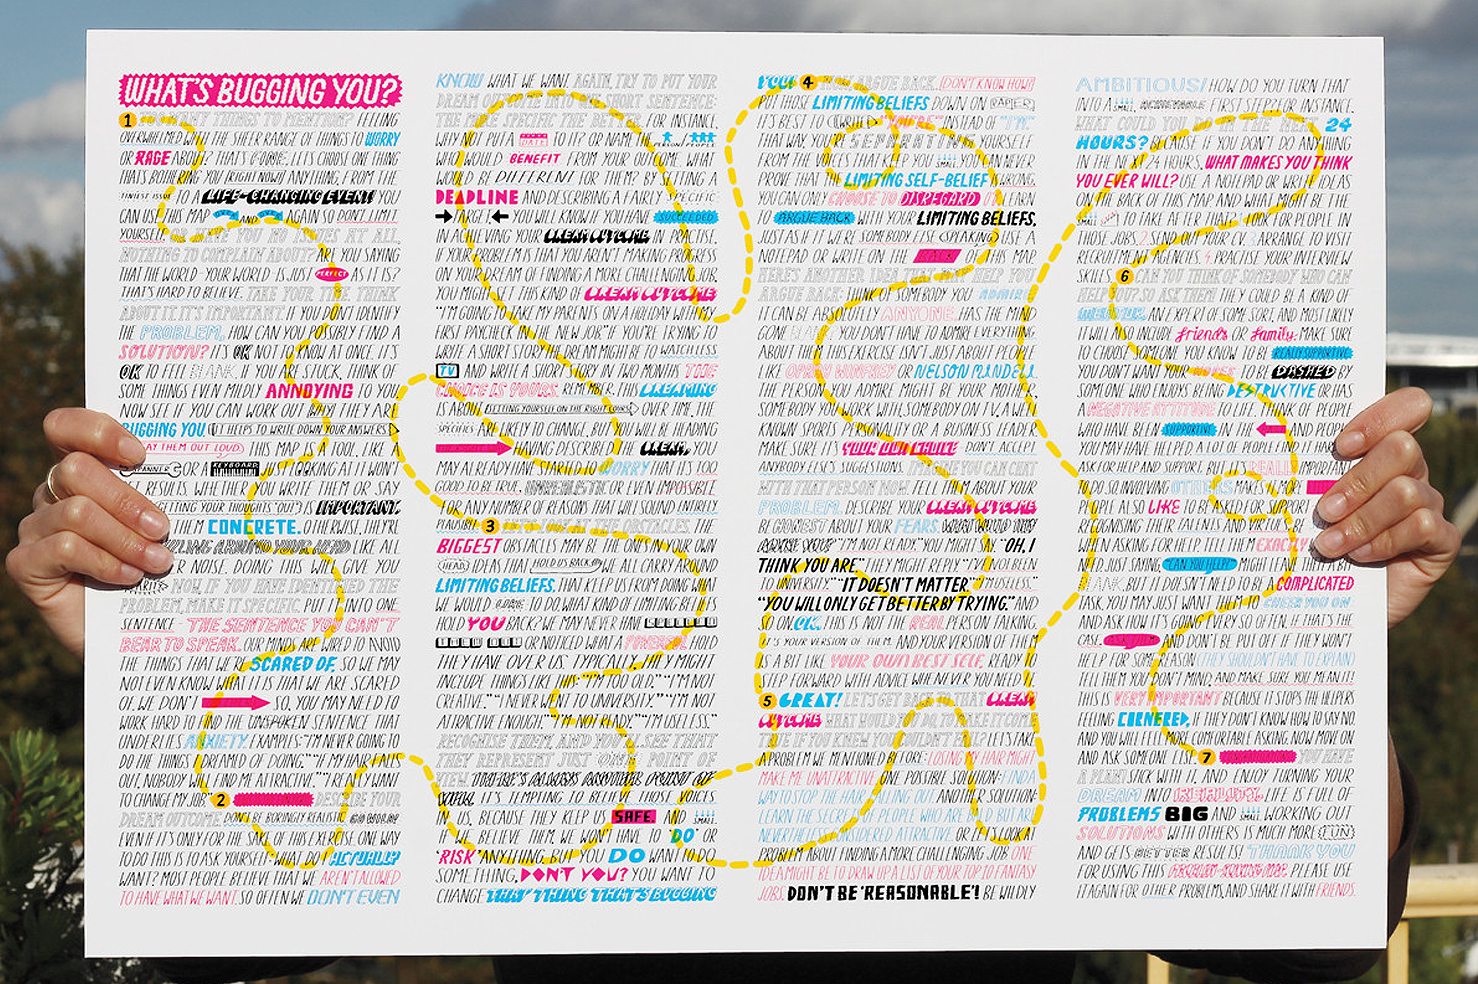 WHAT'S BUGGING YOU?
1 FEELING
OVERWHELMED WITH THE SHEER RANGE OF THINGS TO WORRY
OR RAGE ABOUT? THAT'S LET'S CHOOSE ONE THING
THAT'S BOTHERING YOU RIGHT NOW! ANYTHING, FROM THE
TINIEST ISSUE TO A LIFE-CHANGING EVENT! YOU
CAN USE THIS MAP AND AGAIN SO DON'T LIMIT
YOURSELF. OR HAVE YOU NO ISSUES AT ALL,
NOTHING TO COMPLAIN ABOUT? ARE YOU SAYING
THAT THE WORLD - YOUR WORLD IS JUST PERFECT AS IT IS?
THAT'S HARD TO BELIEVE. TAKE YOUR TIME. THINK
ABOUT IT. IT'S IMPORTANT. IF YOU DON'T IDENTIFY
THE PROBLEM, HOW CAN YOU POSSIBLY FIND A
SOLUTION? IT'S OK NOT TO KNOW AT ONCE. IT'S
OK TO FEEL BLANK. IF YOU ARE STUCK, THINK OF
SOME THINGS EVEN MILDLY ANNOYING TO YOU
NOW SEE IF YOU CAN WORK OUT WHY THEY ARE
BUGGING YOU. (IT HELPS TO WRITE DOWN YOUR ANSWERS)
SAY THEM OUT LOUD THIS MAP IS A TOOL. LIKE
SPANNER OR A KEYBOARD JUST LOOKING AT IT WON'T
RESULTS. WHETHER YOU WRITE THEM OR SAY
GETTING YOUR THOUGHTS OUT IS IMPORTANT.
THEM CONCRETE. OTHERWISE, THEY'RE
AROUND YOUR HEAD LIKE ALL
NOISE. DOING THIS WILL GIVE YOU
NOW, IF YOU HAVE IDENTIFIED THE
PROBLEM, MAKE IT SPECIFIC. PUT IT INTO ONE
SENTENCE - THE SENTENCE YOU CAN'T
BEAR TO SPEAK. ARE WIRED TO AVOID
THE THINGS THAT WE'RE SCARED OF. SO WE MAY
NOT EVEN KNOW WHAT IT IS THAT WE ARE SCARED
OF. WE DON'T SO, YOU MAY NEED TO
WORK HARD TO FIND THE UNSPOKEN SENTENCE THAT
UNDERLIES ANXIETY. EXAMPLES: "I'M NEVER GOING TO
DO THE THINGS I DREAMED OF DOING." "IF MY HAIR FALLS
OUT, NOBODY WILL FIND ME ATTRACTIVE." "I REALLY WANT
TO CHANGE MY JOB." 2 DESCRIBE YOUR
DREAM OUTCOME DON'T BE BORINGLY REALISTIC
EVEN IF IT'S ONLY FOR THE SAKE OF THIS EXERCISE. ONE WAY
TO DO THIS IS TO ASK YOURSELF: WHAT DO I ACTUALLY
WANT? MOST PEOPLE BELIEVE THAT WE AREN'T ALLOWED
TO HAVE WHAT WE WANT. SO OFTEN WE DON'T EVEN
KNOW WHAT WE WANT. AGAIN, TRY TO PUT YOUR
DREAM OUTCOME INTO ONE SHORT SENTENCE:
THE MORE SPECIFIC THE BETTER. FOR INSTANCE,
WHY NOT PUT A DATE TO IT? OR NAME THE
WHO WOULD BENEFIT FROM YOUR OUTCOME. WHAT
WOULD BE DIFFERENT FOR THEM? BY SETTING A
DEADLINE AND DESCRIBING A FAIRLY SPECIFIC
TARGET YOU WILL KNOW IF YOU HAVE SUCCEEDED
IN ACHIEVING YOUR DREAM OUTCOME. IN PRACTISE,
IF YOUR PROBLEM IS THAT YOU AREN'T MAKING PROGRESS
ON YOUR DREAM OF FINDING A MORE CHALLENGING JOB,
YOU MIGHT GET THIS KIND OF DREAM OUTCOME
"I'M GOING TO TAKE MY PARENTS ON A HOLIDAY WITH MY
FIRST PAYCHECK IN MY NEW JOB" IF YOU'RE TRYING TO
WRITE A SHORT STORY THE DREAM MIGHT BE TO WATCH LESS
TV AND WRITE A SHORT STORY IN TWO MONTHS. THE
CHOICE IS YOURS. REMEMBER, DREAMING
IS ABOUT GETTING YOURSELF ON THE RIGHT COURSE OVER TIME, THE
SPECIFICS ARE LIKELY TO CHANGE, BUT YOU WILL BE HEADING
HAVING DESCRIBED DREAM, YOU
MAY ALREADY HAVE STARTED TO WORRY THAT IT'S TOO
GOOD TO BE TRUE, UNREALISTIC OR EVEN IMPOSSIBLE
ANY NUMBER OF REASONS THAT WILL SOUND
PLAUSIBLE 3 THE OBSTACLES. THE
BIGGEST OBSTACLES MAY BE THE ONES IN YOUR OWN
HEAD IDEAS THAT HOLD US BACK. WE ALL CARRY AROUND
LIMITING BELIEFS. THAT KEEP US FROM DOING WHAT
WE WOULD TO DO. WHAT KIND OF LIMITING BELIEFS
HOLD YOU BACK? WE MAY NEVER HAVE
OR NOTICED WHAT A POWERFUL
THEY HAVE OVER US. TYPICALLY, THEY MIGHT
INCLUDE THINGS LIKE "I'M TOO OLD." "I'M NOT
CREATIVE." "I NEVER WENT TO UNIVERSITY." "I'M NOT
ATTRACTIVE ENOUGH." "I'M NOT READY." "I'M USELESS."
RECOGNISE THEM, AND YOU'LL SEE THAT
THEY REPRESENT JUST ONE POINT OF
VIEW. THERE'S ALWAYS ANOTHER POINT OF
VIEW. IT'S TEMPTING TO BELIEVE THOSE VOICES
IN US, BECAUSE THEY KEEP US SAFE. AND
WE BELIEVE THEM WE WON'T HAVE TO 'DO' OR
'RISK' ANYTHING. BUT YOU DO WANT TO DO
SOMETHING, DON'T YOU? YOU WANT TO
CHANGE THAT THING THAT'S BUGGING
YOU! 4 ARGUE BACK. DON'T KNOW HOW?
PUT THOSE LIMITING BELIEFS DOWN ON PAPER
IT'S BEST TO WRITE INSTEAD OF "I'M".
THAT WAY, YOU SEPARATE YOURSELF
FROM THE VOICES THAT KEEP YOU SMALL. YOU CAN NEVER
PROVE THAT THE LIMITING SELF-BELIEF IS WRONG.
YOU CAN ONLY CHOOSE TO DISREGARD OR LEARN
TO ARGUE BACK WITH YOUR LIMITING BELIEFS.
JUST AS IF IT WERE SOMEBODY ELSE SPEAKING USE A
NOTEPAD OR WRITE ON THE BACK OF THIS MAP.
HERE'S ANOTHER IDEA THAT CAN HELP YOU
ARGUE BACK: THINK OF SOMEBODY YOU ADMIRE
IT CAN BE ABSOLUTELY ANYONE. HAS THE MIND
GONE BLANK? YOU DON'T HAVE TO ADMIRE EVERYTHING
ABOUT THEM THIS EXERCISE ISN'T JUST ABOUT PEOPLE
LIKE OPRAH WINFREY OR NELSON MANDELA.
PEOPLE YOU ADMIRE MIGHT BE YOUR MOTHER,
SOMEBODY YOU WORK WITH, SOMEBODY ON T.V., A WELL
KNOWN SPORTS PERSONALITY OR A BUSINESS LEADER.
MAKE SURE IT'S YOUR OWN CHOICE DON'T ACCEPT
ANYBODY ELSE'S SUGGESTIONS. IMAGINE YOU CAN CHAT
WITH THAT PERSON NOW. TELL THEM ABOUT YOUR
PROBLEM. DESCRIBE YOUR DREAM OUTCOME
BE HONEST ABOUT YOUR FEARS. WHAT WOULD THEY
ADVISE YOU? "I'M NOT READY." YOU MIGHT SAY. "OH, I
THINK YOU ARE" THEY MIGHT REPLY "I'VE NOT BEEN
TO UNIVERSITY." "IT DOESN'T MATTER"
"YOU WILL ONLY GET BETTER BY TRYING." AND
SO ON. OK, THIS IS NOT THE REAL PERSON TALKING,
IT'S YOUR VERSION OF THEM. AN OTHER VERSION OF THEM
IS A BIT LIKE YOUR OWN BEST SELF, READY TO
STEP FORWARD WITH ADVICE WHENEVER YOU NEED IT.
5 GREAT! LET'S GET BACK TO THAT DREAM
OUTCOME WHAT WOULD YOU DO, TO MAKE IT COME
TRUE IF YOU KNEW YOU COULDN'T FAIL? LET'S TAKE
A PROBLEM WE MENTIONED BEFORE: LOSING MY HAIR MIGHT
MAKE ME UNATTRACTIVE. ONE POSSIBLE SOLUTION: FIND A
WAY TO STOP THE HAIR FALLING OUT ANOTHER SOLUTION:
LEARN THE SECRETS OF PEOPLE WHO ARE BALD BUT ARE
NEVERTHELESS CONSIDERED ATTRACTIVE OR LET'S LOOK AT
PROBLEM ABOUT FINDING A MORE CHALLENGING JOB. ONE
IDEA MIGHT BE TO DRAW UP A LIST OF YOUR TOP 10 FANTASY
JOBS. DON'T BE 'REASONABLE'! BE WILDLY
AMBITIOUS! HOW DO YOU TURN THAT
INTO A SMALL ACHIEVABLE FIRST STEP? FOR INSTANCE,
WHAT COULD YOU DO IN THE NEXT 24
HOURS? BECAUSE IF YOU DON'T DO ANYTHING
IN THE NEXT 24 HOURS, WHAT MAKES YOU THINK
YOU EVER WILL? USE A NOTEPAD OR WRITE IDEAS
ON THE BACK OF THIS MAP. AND WHAT
TO TAKE AFTER THAT? LOOK FOR PEOPLE IN
THOSE JOBS, 2. SEND OUT YOUR CV. 3. ARRANGE TO VISIT
RECRUITMENT AGENCIES. 4. PRACTISE YOUR INTERVIEW
SKILLS. 6 CAN YOU THINK OF SOMEBODY WHO CAN
HELP YOU? SO ASK THEM! THEY COULD BE A KIND OF
AN EXPERT OF SOME SORT, AND MOST LIKELY
IT WILL INCLUDE friends or family. MAKE SURE
TO CHOOSE SOMEONE YOU KNOW TO BE REALLY SUPPORTIVE
YOU DON'T WANT YOUR HOPES TO BE DASHED BY
SOMEONE WHO ENJOYS BEING DESTRUCTIVE OR HAS
A NEGATIVE ATTITUDE TO LIFE. THINK OF PEOPLE
WHO HAVE BEEN SUPPORTIVE IN THE
A LOT OF PEOPLE
ASK FOR HELP AND SUPPORT. BUT IT'S REALLY IMPORTANT
TO DO SO. INVOLVING OTHERS MAKES IT MORE
PEOPLE ALSO LIKE TO BE ASKED FOR SUPPORT
RECOGNISING THEIR TALENTS AND
WHEN ASKING FOR HELP, TELL THEM EXACTLY
JUST SAYING, "CAN YOU HELP?" MIGHT
BLANK. BUT IT DOESN'T NEED TO BE A COMPLICATED
TASK, YOU MAY JUST WANT THEM TO CHEER YOU ON
AND ASK HOW IT'S GOING EVERY SO OFTEN. IF THAT'S THE
CASE, ASK THEM AND DON'T BE PUT OFF IF THEY WON'T
HELP FOR SOME REASON (THEY SHOULDN'T HAVE TO EXPLAIN)
TELL THEM YOU DON'T MIND, AND MAKE SURE YOU MEAN IT!
THIS IS VERY IMPORTANT BECAUSE IT STOPS THE HELPERS
FEELING CORNERED. IF THEY DON'T KNOW HOW TO SAY NO.
AND YOU WILL FEEL MORE COMFORTABLE ASKING. NOW MOVE ON
AND ASK SOMEONE ELSE. 7 YOU HAVE
A PLAN! STICK WITH IT, AND ENJOY TURNING YOUR
DREAM INTO REALITY. LIFE IS FULL OF
PROBLEMS BIG AND SMALL WORKING OUT
SOLUTIONS WITH OTHERS IS MUCH MORE FUN
AND GETS BETTER RESULTS! THANK YOU
FOR USING THIS PLEASE USE
IT AGAIN FOR OTHER PROBLEMS, AND SHARE IT WITH FRIENDS.